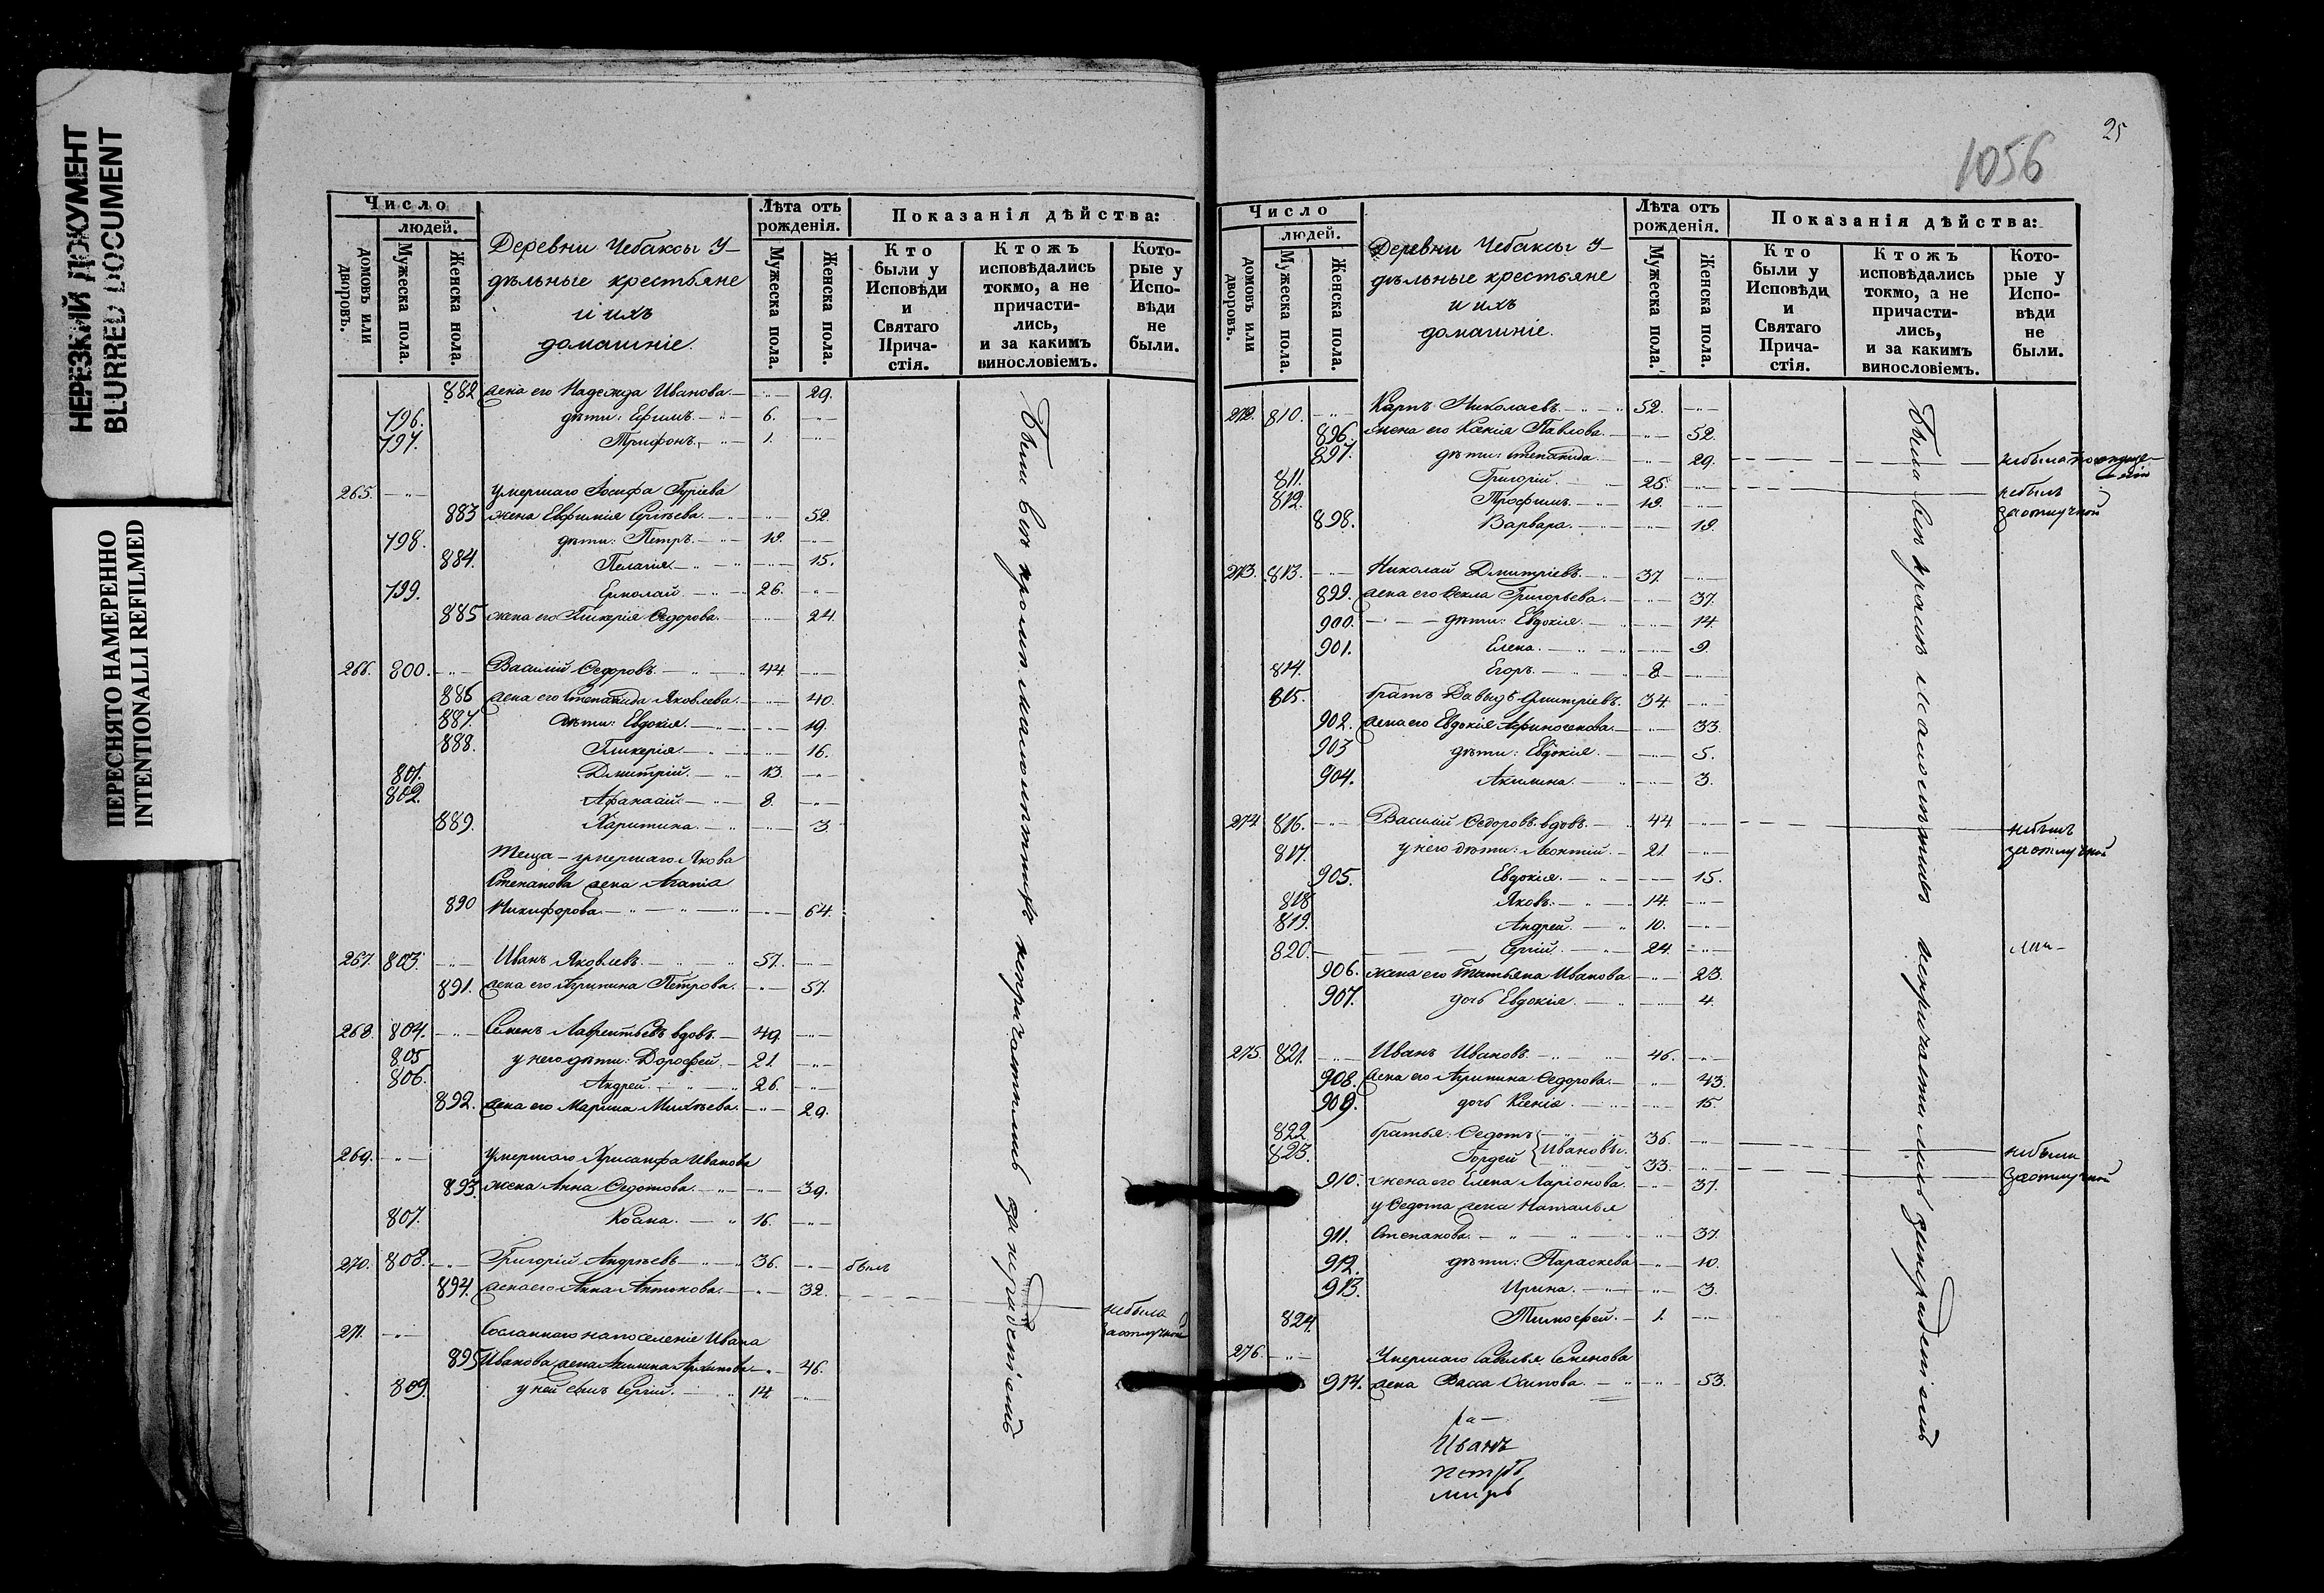 НЕРЕЗКИЙ ДОКУМЕНТ
BLURRED DOCUMENT
ПЕРЕСНЯТО НАМЕРЕННО
INTENTIONALLI REFILMED
Число
людей.
домовъ или дворовъ.
Мужеска пола.
Женска пола.
Деревни Чебаксы У-
дѣльные крестьяне
и ихъ
домашніе.
Лѣта отъ
рожденія.
Мужеска пола.
Женска пола.
Показанія дѣйства:
Кто
были у
Исповѣди
и
Святаго
Прича-
стія.
Ктожъ
исповѣдались
токмо, а не
причасти-
лись,
и за какимъ
винословіемъ.
Кото-
рые у
Испо-
вѣди
не
были.
882 жена его Надежда Иванова 29.
796. дѣти: Ефимъ 6.
797. Трифонъ 1.
265. умершаго Іосифа Гуріева
883 жена Евфимія Сергѣева 52.
798. дѣти: Петръ 19.
884. Пелагія 15.
799. Ермолай 26.
885 жена его Гликерія Ѳедорова 24.
266. 800. Василій Ѳедоровъ 44.
886 жена его Степанида Яковлева 40.
887. дѣти: Евдокія 19.
888. Гликерія 16.
801. Дмитрій 13.
802. Афанасій 8.
889. Харитина 3.
Теща - умершаго Якова
Степанова жена Агапія
890 Никифорова 64.
267. 803. Иванъ Яковлевъ 57.
891. жена его Агрипина Петрова 57.
268. 804. Семенъ Лаврентьевъ вдовъ 49.
805 у него дѣти: Дорофей 21.
806. Андрей 26.
892. жена его Марина Михѣева 29.
269. умершаго Хрисанфа Иванова
893. жена Анна Ѳедотова 39.
807. 16.
270. 808. Григорій Андрѣевъ 36. былъ
894. жена его Анна Антонова 32. небыла
заотлучкой
271. Сосланнаго на поселеніе Ивана
895 Иванова жена Акилина 46.
809. у ней сынъ Сергій 14.
Были всѣ кромѣ малолѣтнихъ непричастились за нерадѣніемъ
25
1056
Число
людей.
домовъ или дворовъ.
Мужеска пола.
Женска пола.
Деревни Чебаксы У-
дѣльные крестьяне
и ихъ
домашніе.
Лѣта отъ
рожденія.
Мужеска пола.
Женска пола.
Показанія дѣйства:
Кто
были у
Исповѣди
и
Святаго
Прича-
стія.
Ктожъ
исповѣдались
токмо, а не
причасти-
лись,
и за какимъ
винословіемъ.
Кото-
рые у
Испо-
вѣди
не
были.
272. 810. Карпъ Николаевъ 52.
896. жена его Ксенія Павлова 52.
897. дѣти: Степанида 29. небыла
811. Григорій 25. небылъ
812. Трофимъ 19. заотлучкой
898. Варвара 19.
273. 813. Николай Дмитріевъ 37.
899. жена его Ѳекла Григорьева 37.
900. дѣти: Евдокія 14.
901. Елена 9.
814. Егоръ 8.
815. братъ Давыдъ Дмитріевъ 34.
902. жена его Евдокія 33.
903 дѣти: Евдокія 5.
904. Акилина 3.
274. 816. Василій Ѳедоровъ вдовъ 44. небылъ
817. у него дѣти: Леонтій 21. заотлучкой
905. Евдокія 15.
818 Яковъ 14.
819. Андрей 10.
820. Сергій 24.
906. жена его Татьяна Иванова 23.
907. дочь Евдокія 4.
275. 821. Иванъ Ивановъ 46.
908. жена его Агрипина Ѳедорова 43.
909. дочь Ксенія 15.
822. братья: Ѳедотъ 36.
823. Гордей } Ивановы 33. небыли
910. жена его Елена Ларіонова 37. заотлучкой
у Ѳедота жена Наталья
911. Степанова 37.
912. дѣти: Параскева 10.
913. Ирина 3.
824. Тимофей 1.
276. Умершаго Савелья Семенова
914. жена Васса Осипова 53.
Были всѣ кромѣ малолѣтнихъ непричастились за нерадѣніемъ
Иванъ
Петръ